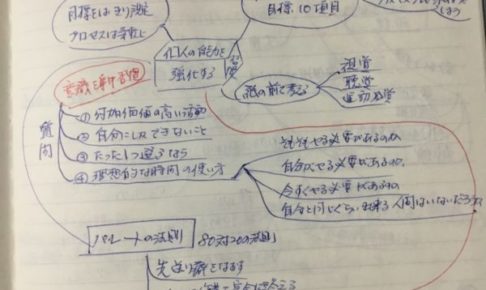 目標をはっきり設定
プロセスは柔軟に
目標10項目
個人の能力を
強化する
寝る前に考える
視覚
聴覚
運動感覚
意識を集中習慣
質問
① 付加価値の高い活動
② 自分にしかできないこと
③ たった1つ選ぶなら
④ 理想的な時間の使い方
そもそもやる必要があるのか
自分がやる必要があるのか
今すぐやる必要があるのか
自分と同じくらい出来る人間はいないだろうか
パレートの法則
80対20の法則
先送り癖をなおす